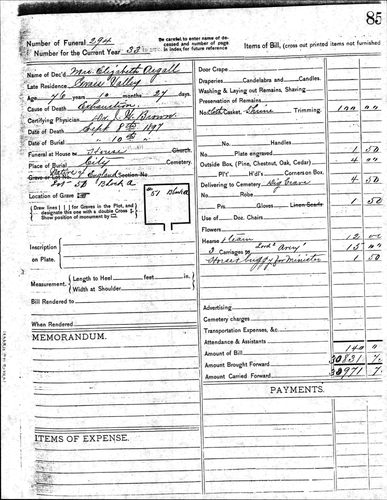 85
Number of Funeral 294
Number for the Current Year 33
Be careful to enter name of deceased and number of page in index for future reference
Name of Dec'd Mrs. Elizabeth Argall
Late Residence Grass Valley
Age 46 years 10 months 27 days.
Cause of Death Exhaustion
Certifying Physician Dr. Brown
Date of Death Sept 8th 1897
Date of Burial " 10th "
Funeral at House Church.
Place of Burial City Cemetery.
Native of England
Grave or Lot No. Section No.
Lot 57 Block A
Location of Grave
51 Block A
Draw lines for Graves in the Plot, and designate this one with a double Cross
Show position of monument by
Inscription on Plate.
Measurement. Length to Heel feet in.
Width at Shoulder
Bill Rendered to
When Rendered
MEMORANDUM.
ITEMS OF EXPENSE.
Items of Bill, (cross out printed items not furnished
Door Crape
Draperies Candelabra and Candles.
Washing & Laying out Remains, Shaving
Preservation of Remains
No Cloth Casket, Trimming. 100 "
No. Handles
Plate engraved 1 50
Outside Box, (Pine, Chestnut, Oak, Cedar) 4 "
Pl't H'dl's Corners on Box
Delivering to Cemetery Dig Grave 4 50
No. Robe
Prs. Gloves Linen Scarfs 1 50
Use of Doc. Chairs
Flowers
Hearse & team 12 00
3 Carriages to 15 "
Horse & buggy for Minister 1 50
Advertising
Cemetery charges
Transportation Expenses, &c.
Attendance & Assistants
Amount of Bill 140 "
Amount Brought Forward 30831 7
Amount Carried Forward 30971 7
PAYMENTS.